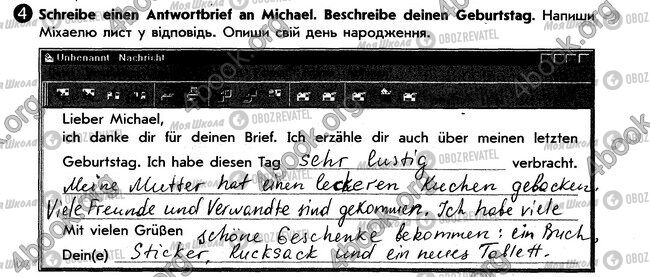 4 Schreibe einen Antwortbrief an Michael. Beschreibe deinen Geburtstag. Напиши
Міхаелю лист у відповідь. Опиши свій день народження.
Unbenannt Nachricht
Lieber Michael,
ich danke dir für deinen Brief. Ich erzähle dir auch über meinen letzten
Geburtstag. Ich habe diesen Tag sehr lustig verbracht.
Meine Mutter hat einen leckeren Kuchen gebacken.
Viele Freunde und Verwandte sind gekommen. Ich habe viele
Mit vielen Grüßen schöne Geschenke bekommen: ein Buch,
Dein(e) Sticker, Rucksack und ein neues Tablett.